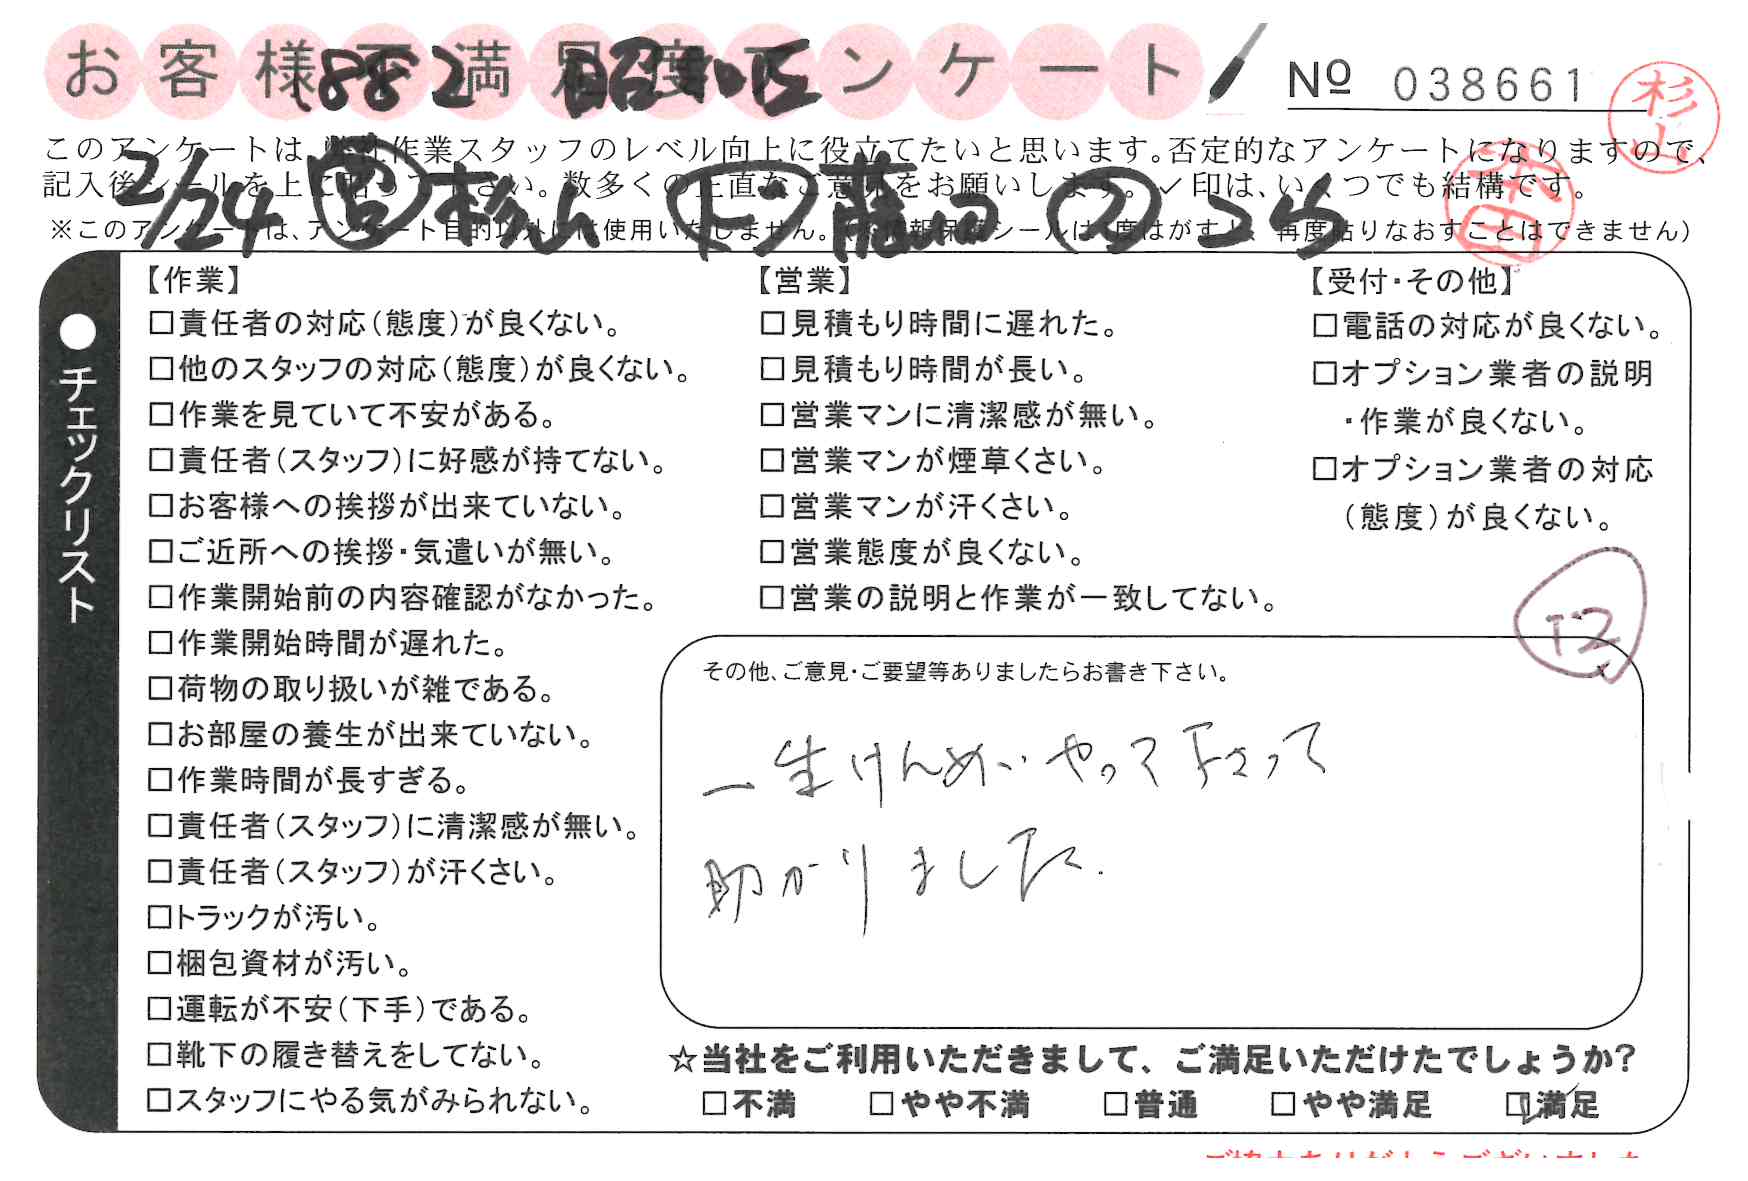 お客様不満足度アンケート
1882 昭和区
Nº 038661
杉山
このアンケートは、弊社作業スタッフのレベル向上に役立てたいと思います。否定的なアンケートになりますので、
記入後シールを上に貼って下さい。数多くの正直なご意見をお願いします。✓印は、いくつでも結構です。
2/24 杉山
※このアンケートは、アンケート目的以外には使用いたしません。(※情報保護シールは1度はがすと、再度貼りなおすことはできません)
●チェックリスト
【作業】
□責任者の対応(態度)が良くない。
□他のスタッフの対応(態度)が良くない。
□作業を見ていて不安がある。
□責任者(スタッフ)に好感が持てない。
□お客様への挨拶が出来ていない。
□ご近所への挨拶・気遣いが無い。
□作業開始前の内容確認がなかった。
□作業開始時間が遅れた。
□荷物の取り扱いが雑である。
□お部屋の養生が出来ていない。
□作業時間が長すぎる。
□責任者(スタッフ)に清潔感が無い。
□責任者(スタッフ)が汗くさい。
□トラックが汚い。
□梱包資材が汚い。
□運転が不安(下手)である。
□靴下の履き替えをしてない。
□スタッフにやる気がみられない。
【営業】
□見積もり時間に遅れた。
□見積もり時間が長い。
□営業マンに清潔感が無い。
□営業マンが煙草くさい。
□営業マンが汗くさい。
□営業態度が良くない。
□営業の説明と作業が一致してない。
【受付・その他】
□電話の対応が良くない。
□オプション業者の説明
・作業が良くない。
□オプション業者の対応
(態度)が良くない。
その他、ご意見・ご要望等ありましたらお書き下さい。
一生けんめいやって下さって
助かりました.
☆当社をご利用いただきまして、ご満足いただけたでしょうか?
□不満 □やや不満 □普通 □やや満足 ☑満足
ご協力ありがとうございました